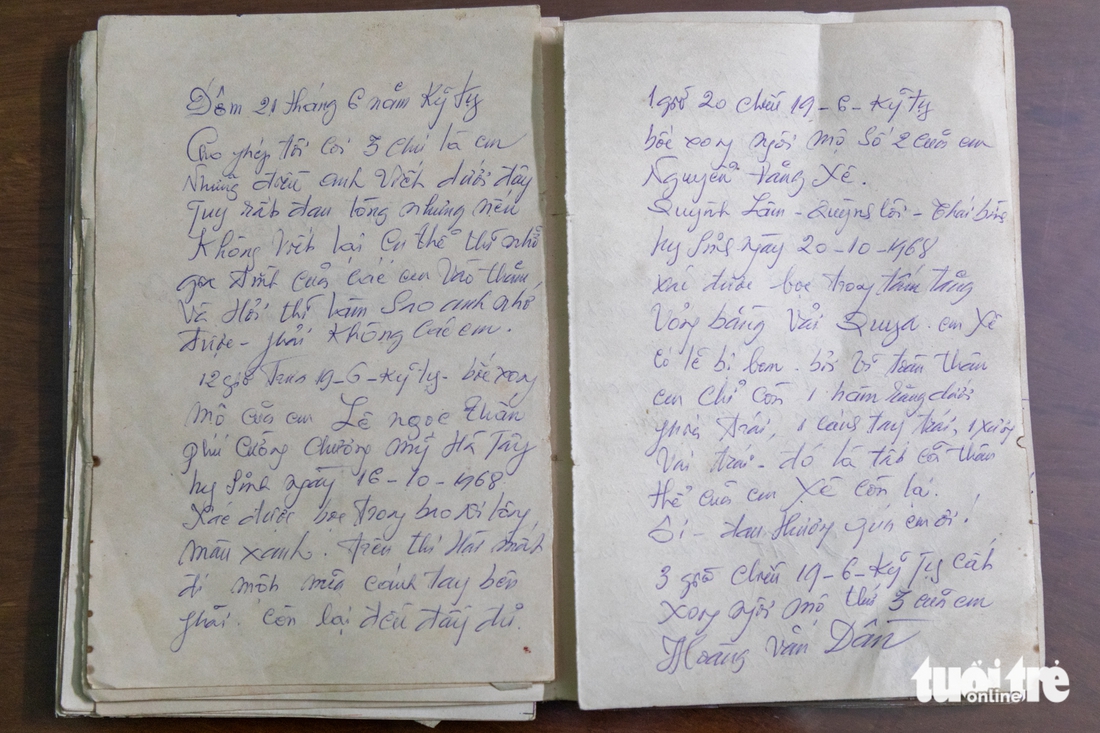 Đêm 21 tháng 6 năm Kỹ Tỵ
Cho phép tôi coi 3 chú là em
Những điều anh viết dưới đây
Tuy rất đau lòng nhưng nếu
Không viết lại cụ thể thì nhỡ
gia đình của các em vào thăm
và hỏi thì làm sao anh nhớ
được - phải không các em.
12 giờ trưa 19-6-Kỹ Tỵ - bốc xong
mộ của em Lê Ngọc Thân
phú Cường Chương mỹ Hà Tây
hy sinh ngày 16-10-1968
Xác được bọc trong bao ni lông
màu xanh. trên thi hài mất
đi một nửa cánh tay bên
phải. còn lại đều đầy đủ.
1 giờ 20 chiều 19-6-Kỹ Tỵ
bốc xong ngôi mộ số 2 của em
Nguyễn Đăng Xê.
Quỳnh Lâm - Quỳnh Côi - Thái bình
hy sinh ngày 20-10-1968
xác được bọc trong tấm tăng
Võng bằng vải . em Xê
có lẽ bị bom. bởi vì toàn thân
em chỉ còn 1 hàm răng dưới
phía trái, 1 cánh tay trái, 1 xương
Vai trái - đó là tất cả thân
thể của em Xê còn lại.
Ôi - đau thương quá em ơi!
3 giờ chiều 19-6-Kỹ Tỵ cất
xong ngôi mộ thứ 3 của em
Hoàng Văn Dần
tuổi trẻ
online